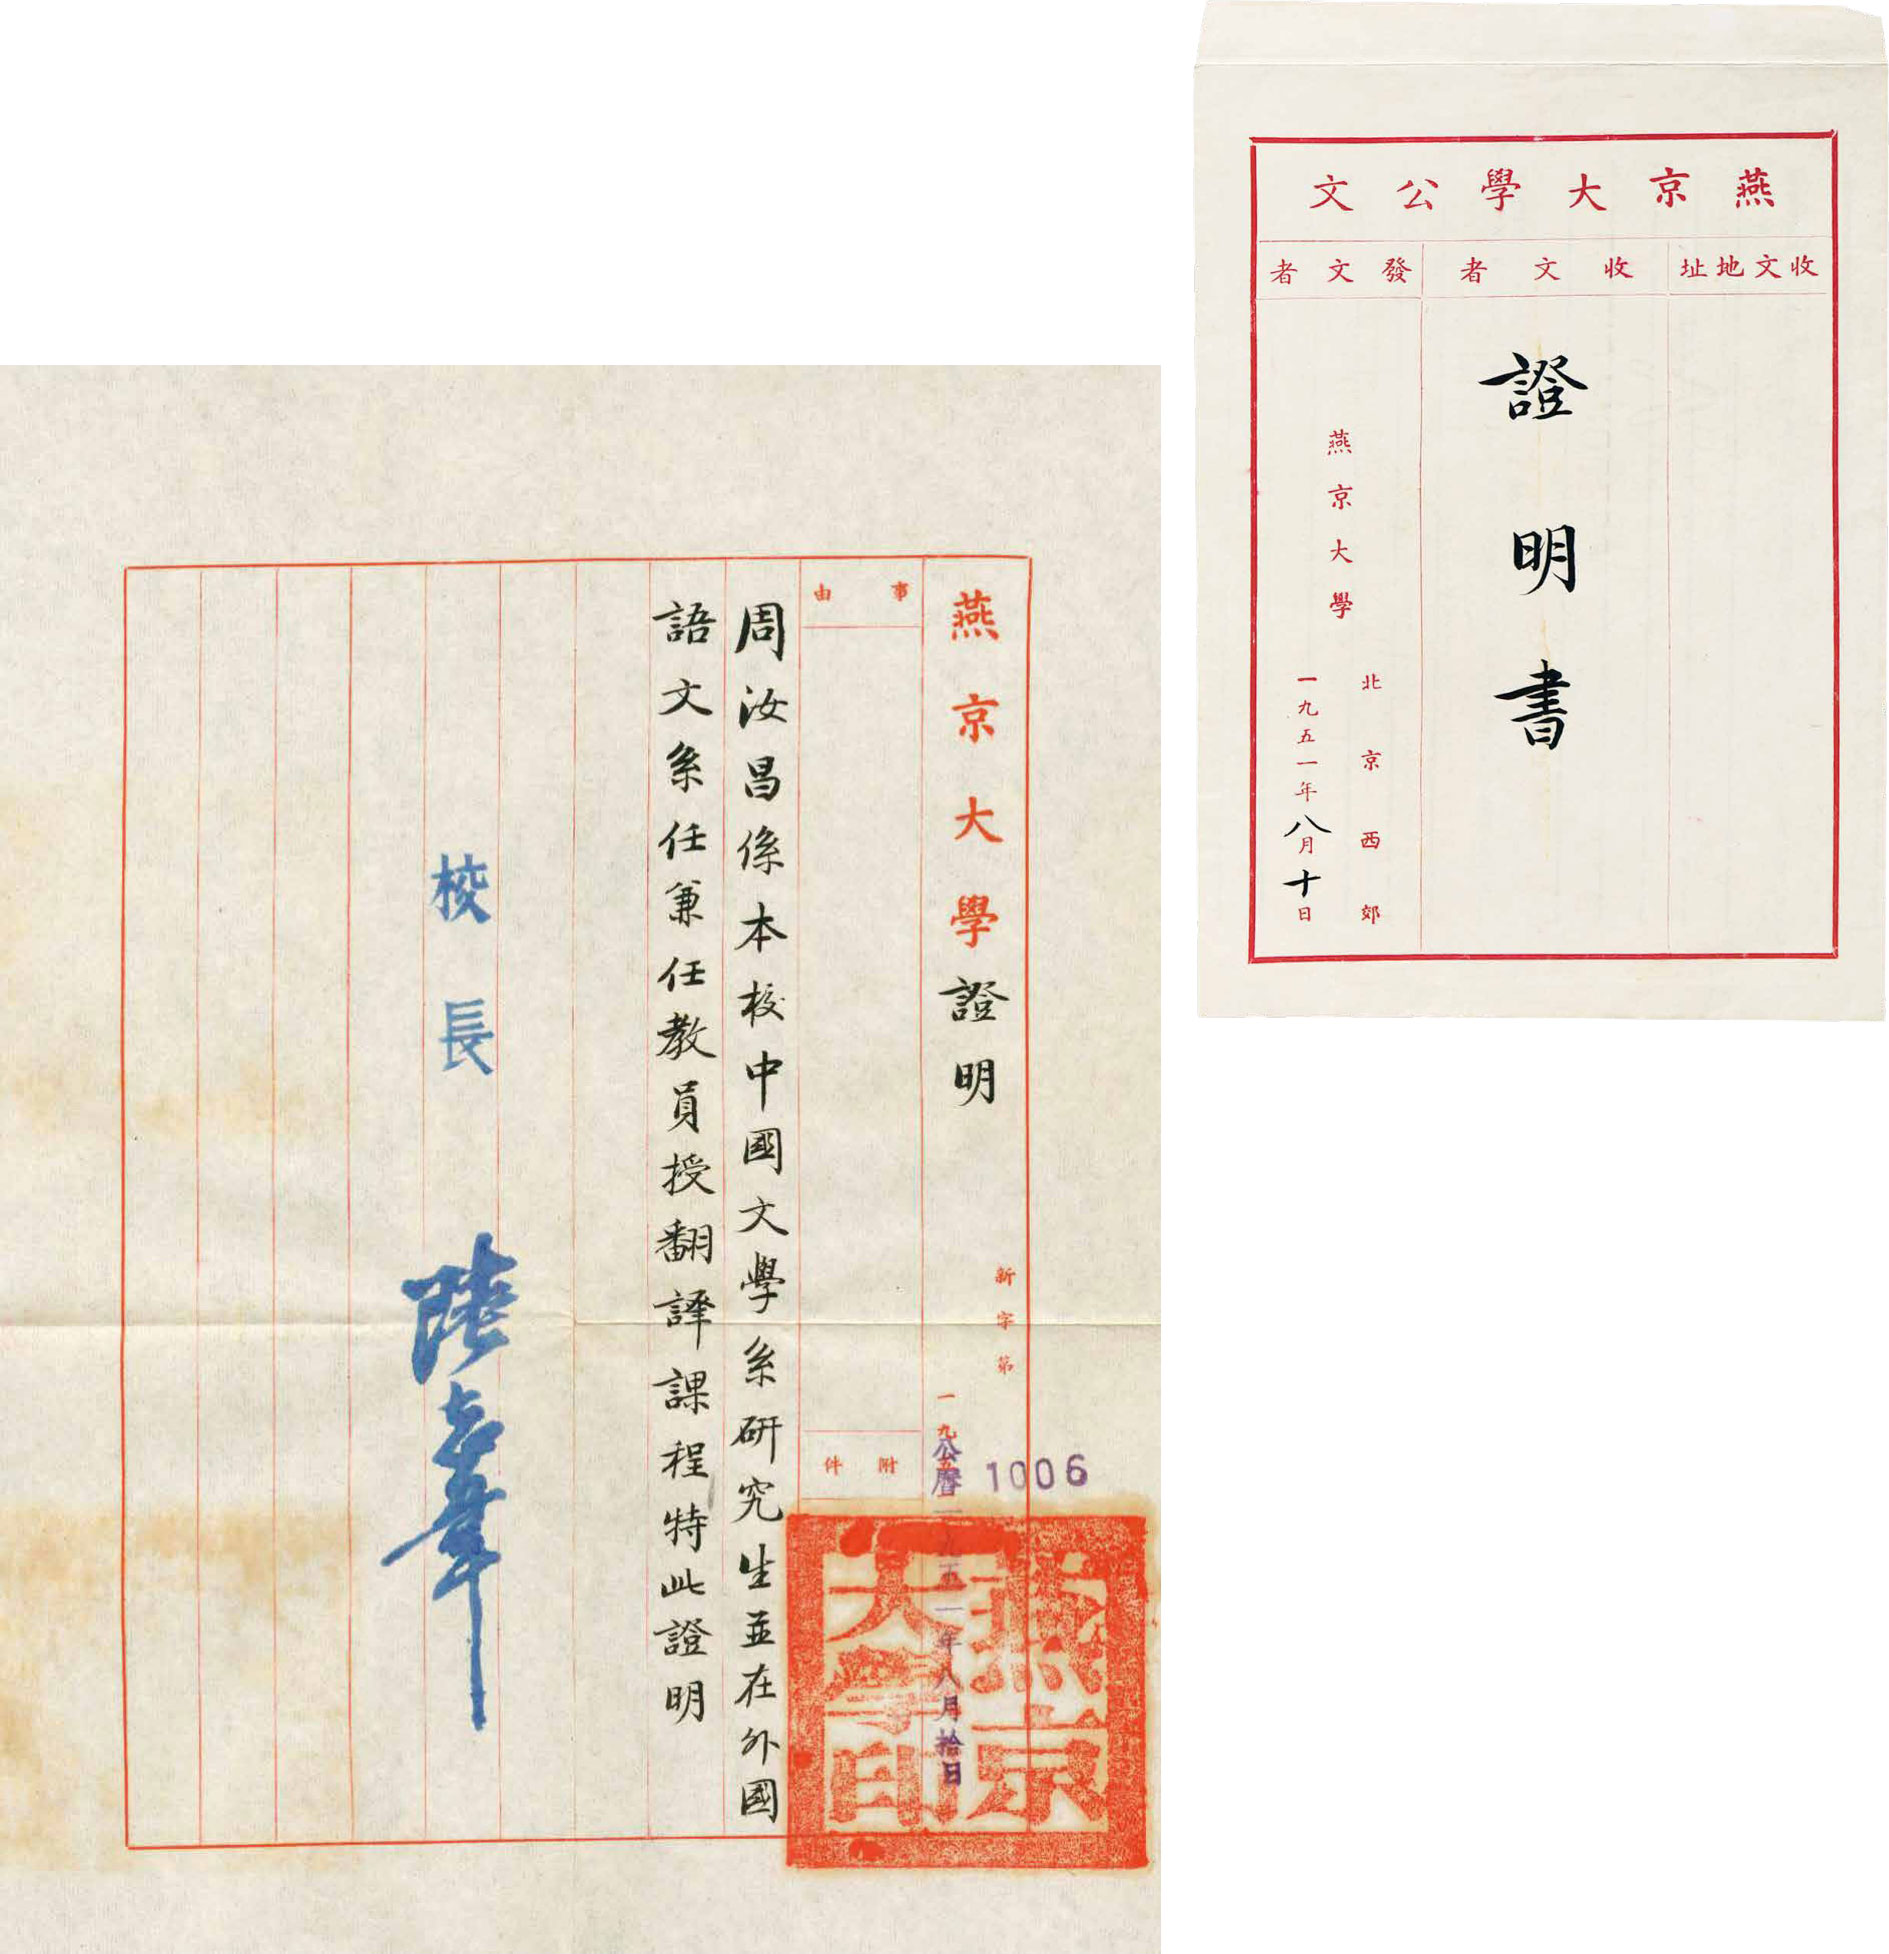 燕京大學公文
收文地址
收文者
發文者
證明書
北京西郊
燕京大學
一九五一年八月十日
燕京大學證明
新字第
1006
一九五
公曆一九五一年八月拾日
事由
附件
周汝昌係本校中國文學系研究生並在外國
語文系任兼任教員授翻譯課程特此證明
校長
陸志韋
燕京
大學印